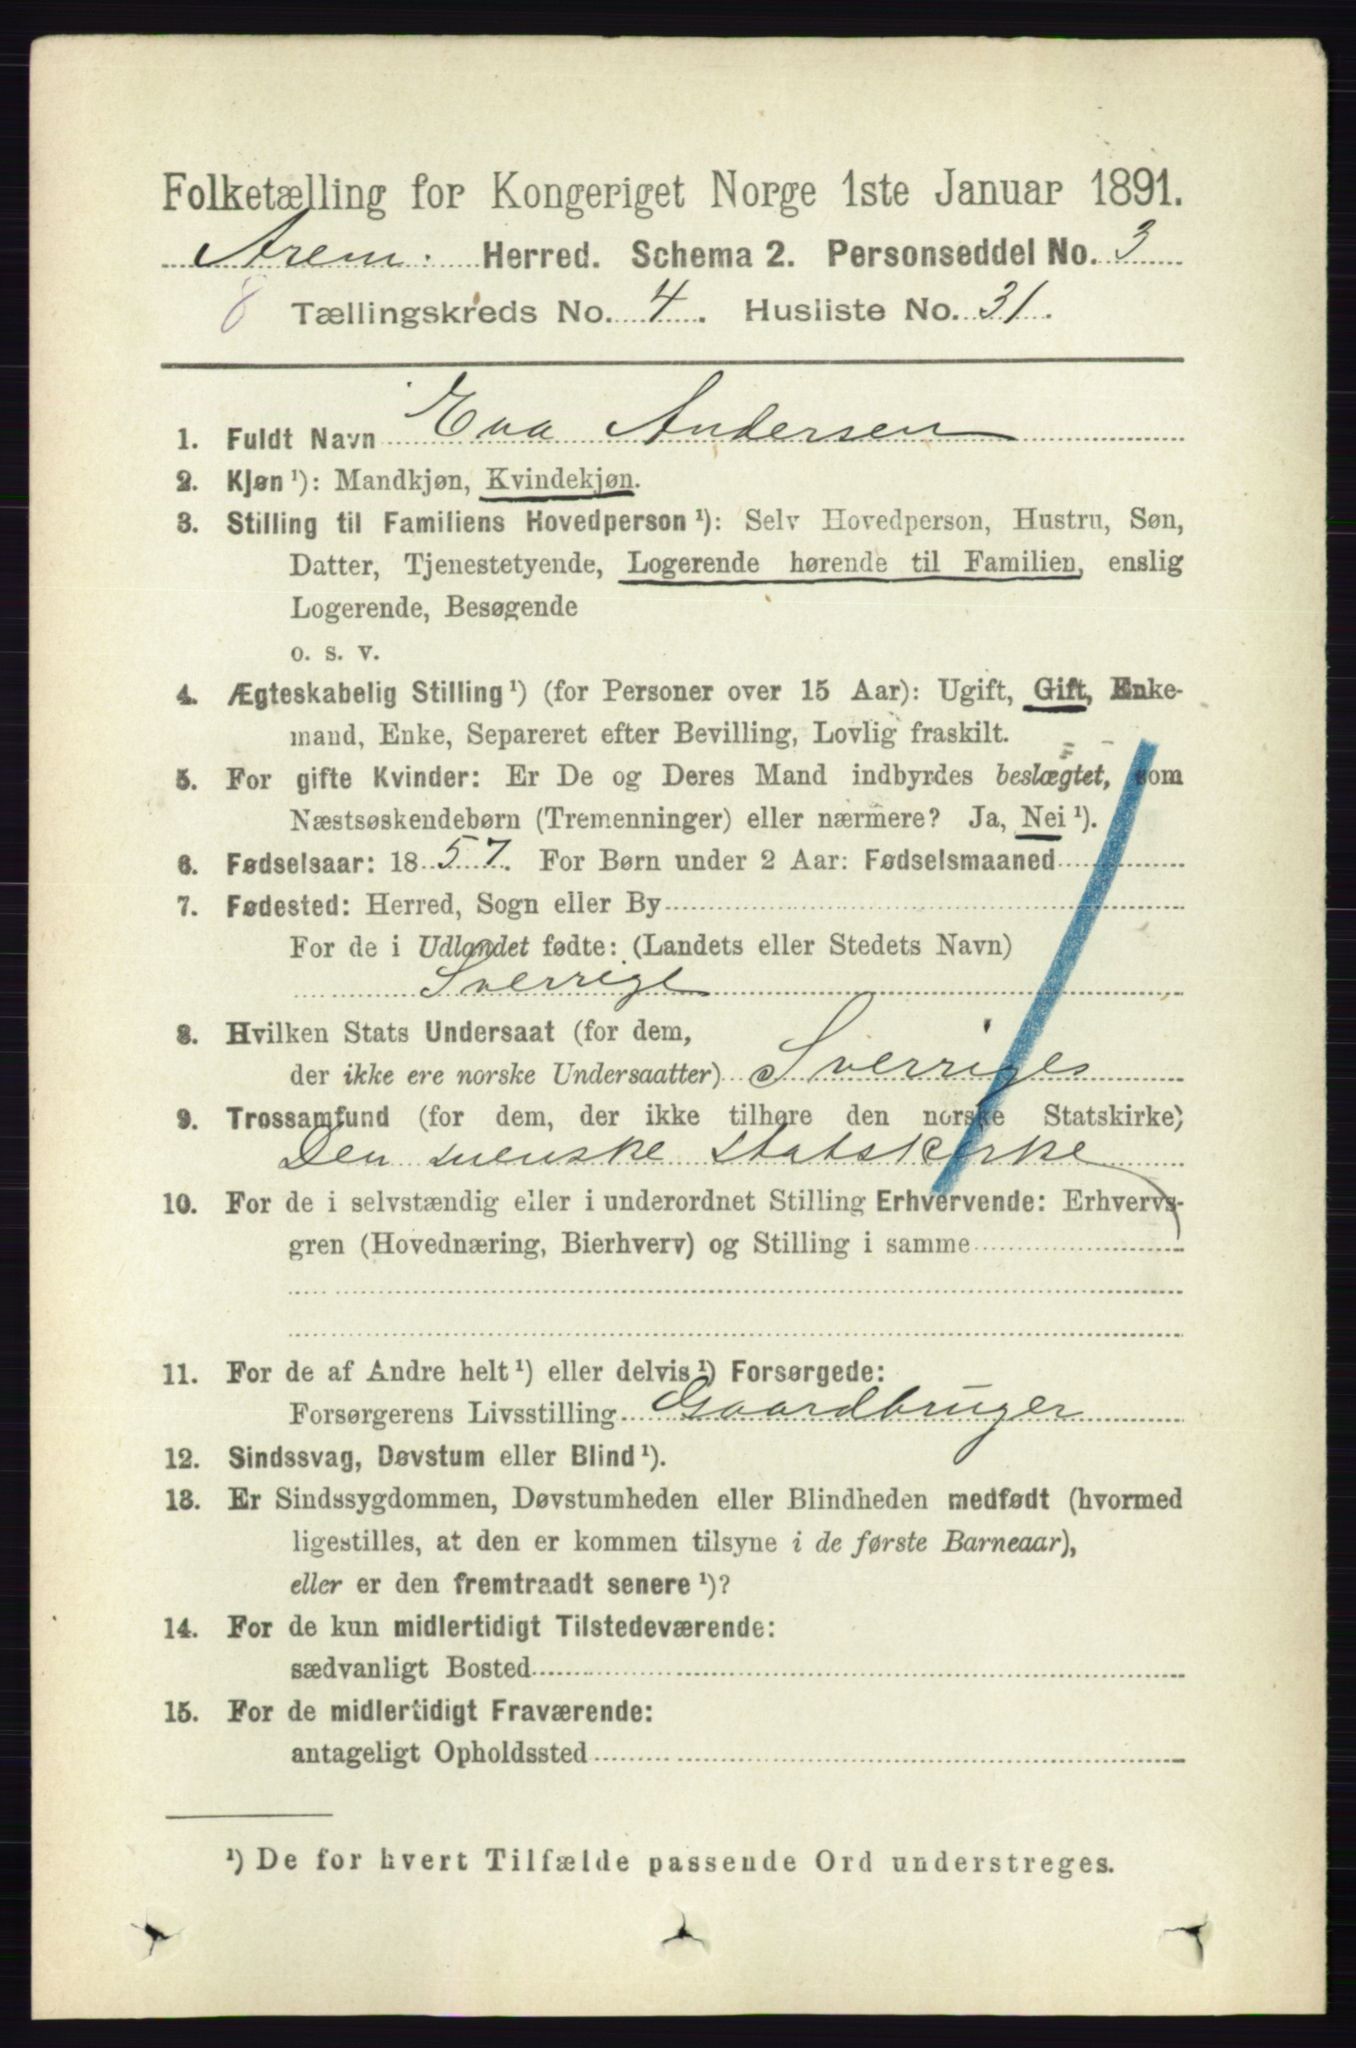 Folketælling for Kongeriget Norge 1ste Januar 1891.
Arem. Herred. Schema 2. Personseddel No. 3
8 Tællingskreds No. 4. Husliste No. 31.
1. Fuldt Navn Eva Andersen
2. Kjøn ¹): Mandkjøn, Kvindekjøn.
3. Stilling til Familiens Hovedperson ¹): Selv Hovedperson, Hustru, Søn,
Datter, Tjenestetyende, Logerende hørende til Familien, enslig
Logerende, Besøgende
o. s. v.
4. Ægteskabelig Stilling ¹) (for Personer over 15 Aar): Ugift, Gift, Enke-
mand, Enke, Separeret efter Bevilling, Lovlig fraskilt.
5. For gifte Kvinder: Er De og Deres Mand indbyrdes beslægtet, som
Næstsøskendebørn (Tremenninger) eller nærmere? Ja, Nei ¹).
6. Fødselsaar: 1857. For Børn under 2 Aar: Fødselsmaaned
7. Fødested: Herred, Sogn eller By
For de i Udlandet fødte: (Landets eller Stedets Navn)
Sverrige
8. Hvilken Stats Undersaat (for dem,
der ikke ere norske Undersaatter) Sverriges
9. Trossamfund (for dem, der ikke tilhøre den norske Statskirke)
Den svenske statskirke
10. For de i selvstændig eller i underordnet Stilling Erhvervende: Erhvervs-
gren (Hovednæring, Bierhverv) og Stilling i samme
11. For de af Andre helt ¹) eller delvis ¹) Forsørgede:
Forsørgerens Livsstilling Gaardbruger
12. Sindssvag, Døvstum eller Blind ¹).
13. Er Sindssygdommen, Døvstumheden eller Blindheden medfødt (hvormed
ligestilles, at den er kommen tilsyne i de første Barneaar),
eller er den fremtraadt senere ¹)?
14. For de kun midlertidigt Tilstedeværende:
sædvanligt Bosted
15. For de midlertidigt Fraværende:
antageligt Opholdssted
¹) De for hvert Tilfælde passende Ord understreges.